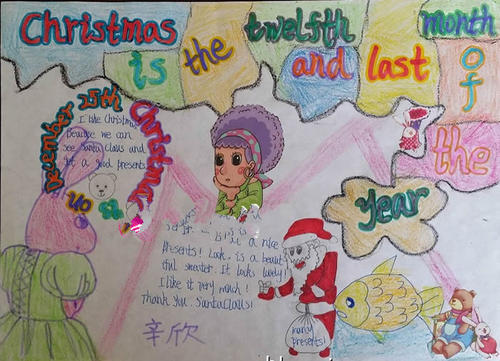 Christmas is the twelfth month
and last of
the
year
December 25th
Christmas
I like Christmas
Because we can
see Santa Claus and
get a good presents
a nice
Presents! Look, is a beauti
ful sweater. It looks lovely!
I like it very much!
Thank you. Santa Claus!
many
presents!
辛欣